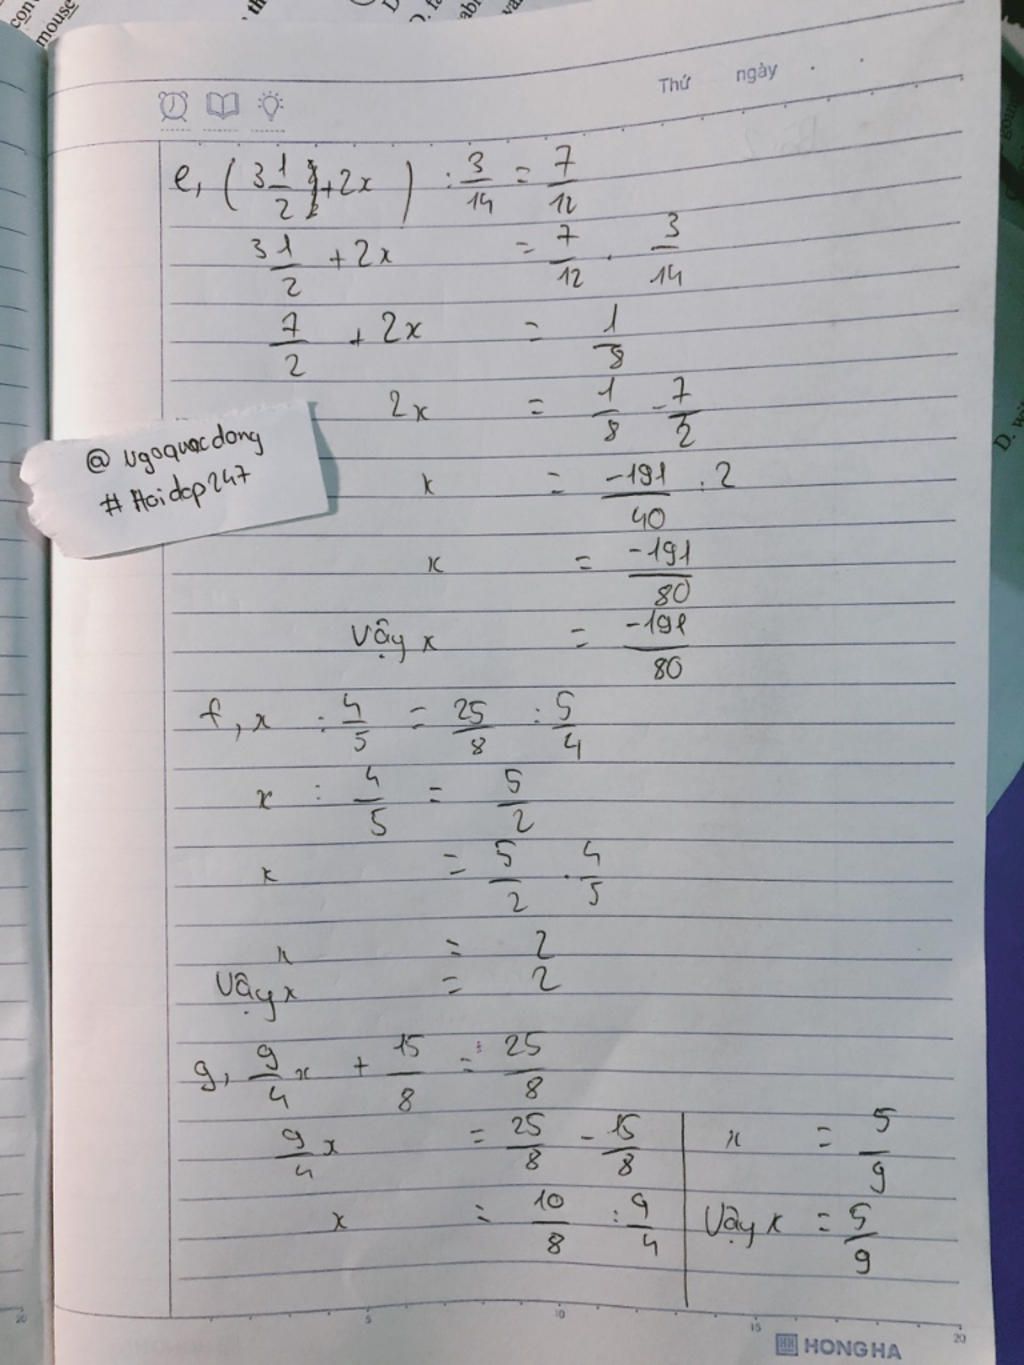 con
mouse
th
D. fa
abl
va
Thứ ngày . .
e, ( 3 1/2 + 2x ) : 3/14 = 7/12
3 1/2 + 2x = 7/12 . 3/14
7/2 + 2x = 1/8
2x = 1/8 - 7/2
@ngoquocdong
#Hoidap247
x = -191/40 : 2
x = -191/80
Vậy x = -191/80
f, x : 4/5 = 25/8 : 5/4
x : 4/5 = 5/2
x = 5/2 . 4/5
x = 2
Vậy x = 2
g, 9/4 x + 15/8 = 25/8
9/4 x = 25/8 - 15/8
x = 10/8 : 9/4
x = 5/9
Vậy x = 5/9
20 5 10 15 20
HH HONG HA